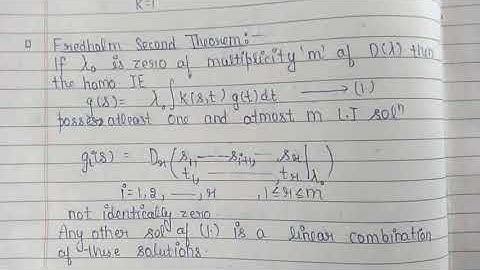 K=1
Fredholm Second Theorem:-
If λ₀ is zero of multiplicity 'm' of D(λ) then
the homo IE
g(s) = λ₀ ∫ K(s,t) g(t) dt ⟶ (1.)
possess atleast one and atmost m L.I solⁿ
gᵢ(s) = Dᵣ ( s₁, ---- sᵢ₊₁, --- sᵣ | λ₀ )
t₁, ------------, tᵣ
i = 1, 2, ---, r , 1 ≤ r ≤ m
not identically zero.
Any other solⁿ of (1.) is a linear combination
of these solutions.